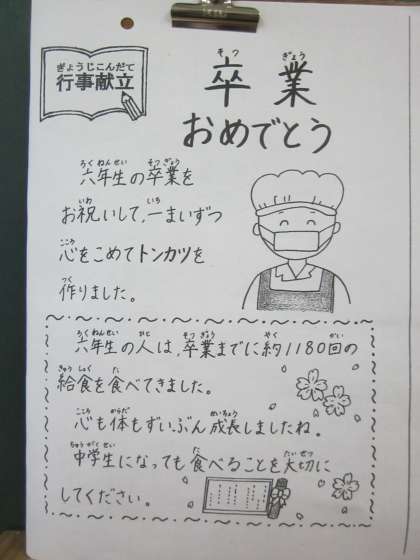 ぎょうじこんだて
行事献立
そつ ぎょう
卒業
おめでとう
ろくねんせい そつぎょう
六年生の卒業を
いわ いち
お祝いして、一まいずつ
こころ
心をこめてトンカツを
つく
作りました。
ろくねんせい かた そつぎょう やく かい
六年生の人は、卒業までに約1180回の
きゅうしょく た
給食を食べてきました。
こころ からだ せいちょう
心も体もずいぶん成長しましたね。
ちゅうがくせい た たいせつ
中学生になっても食べることを大切に
してください。